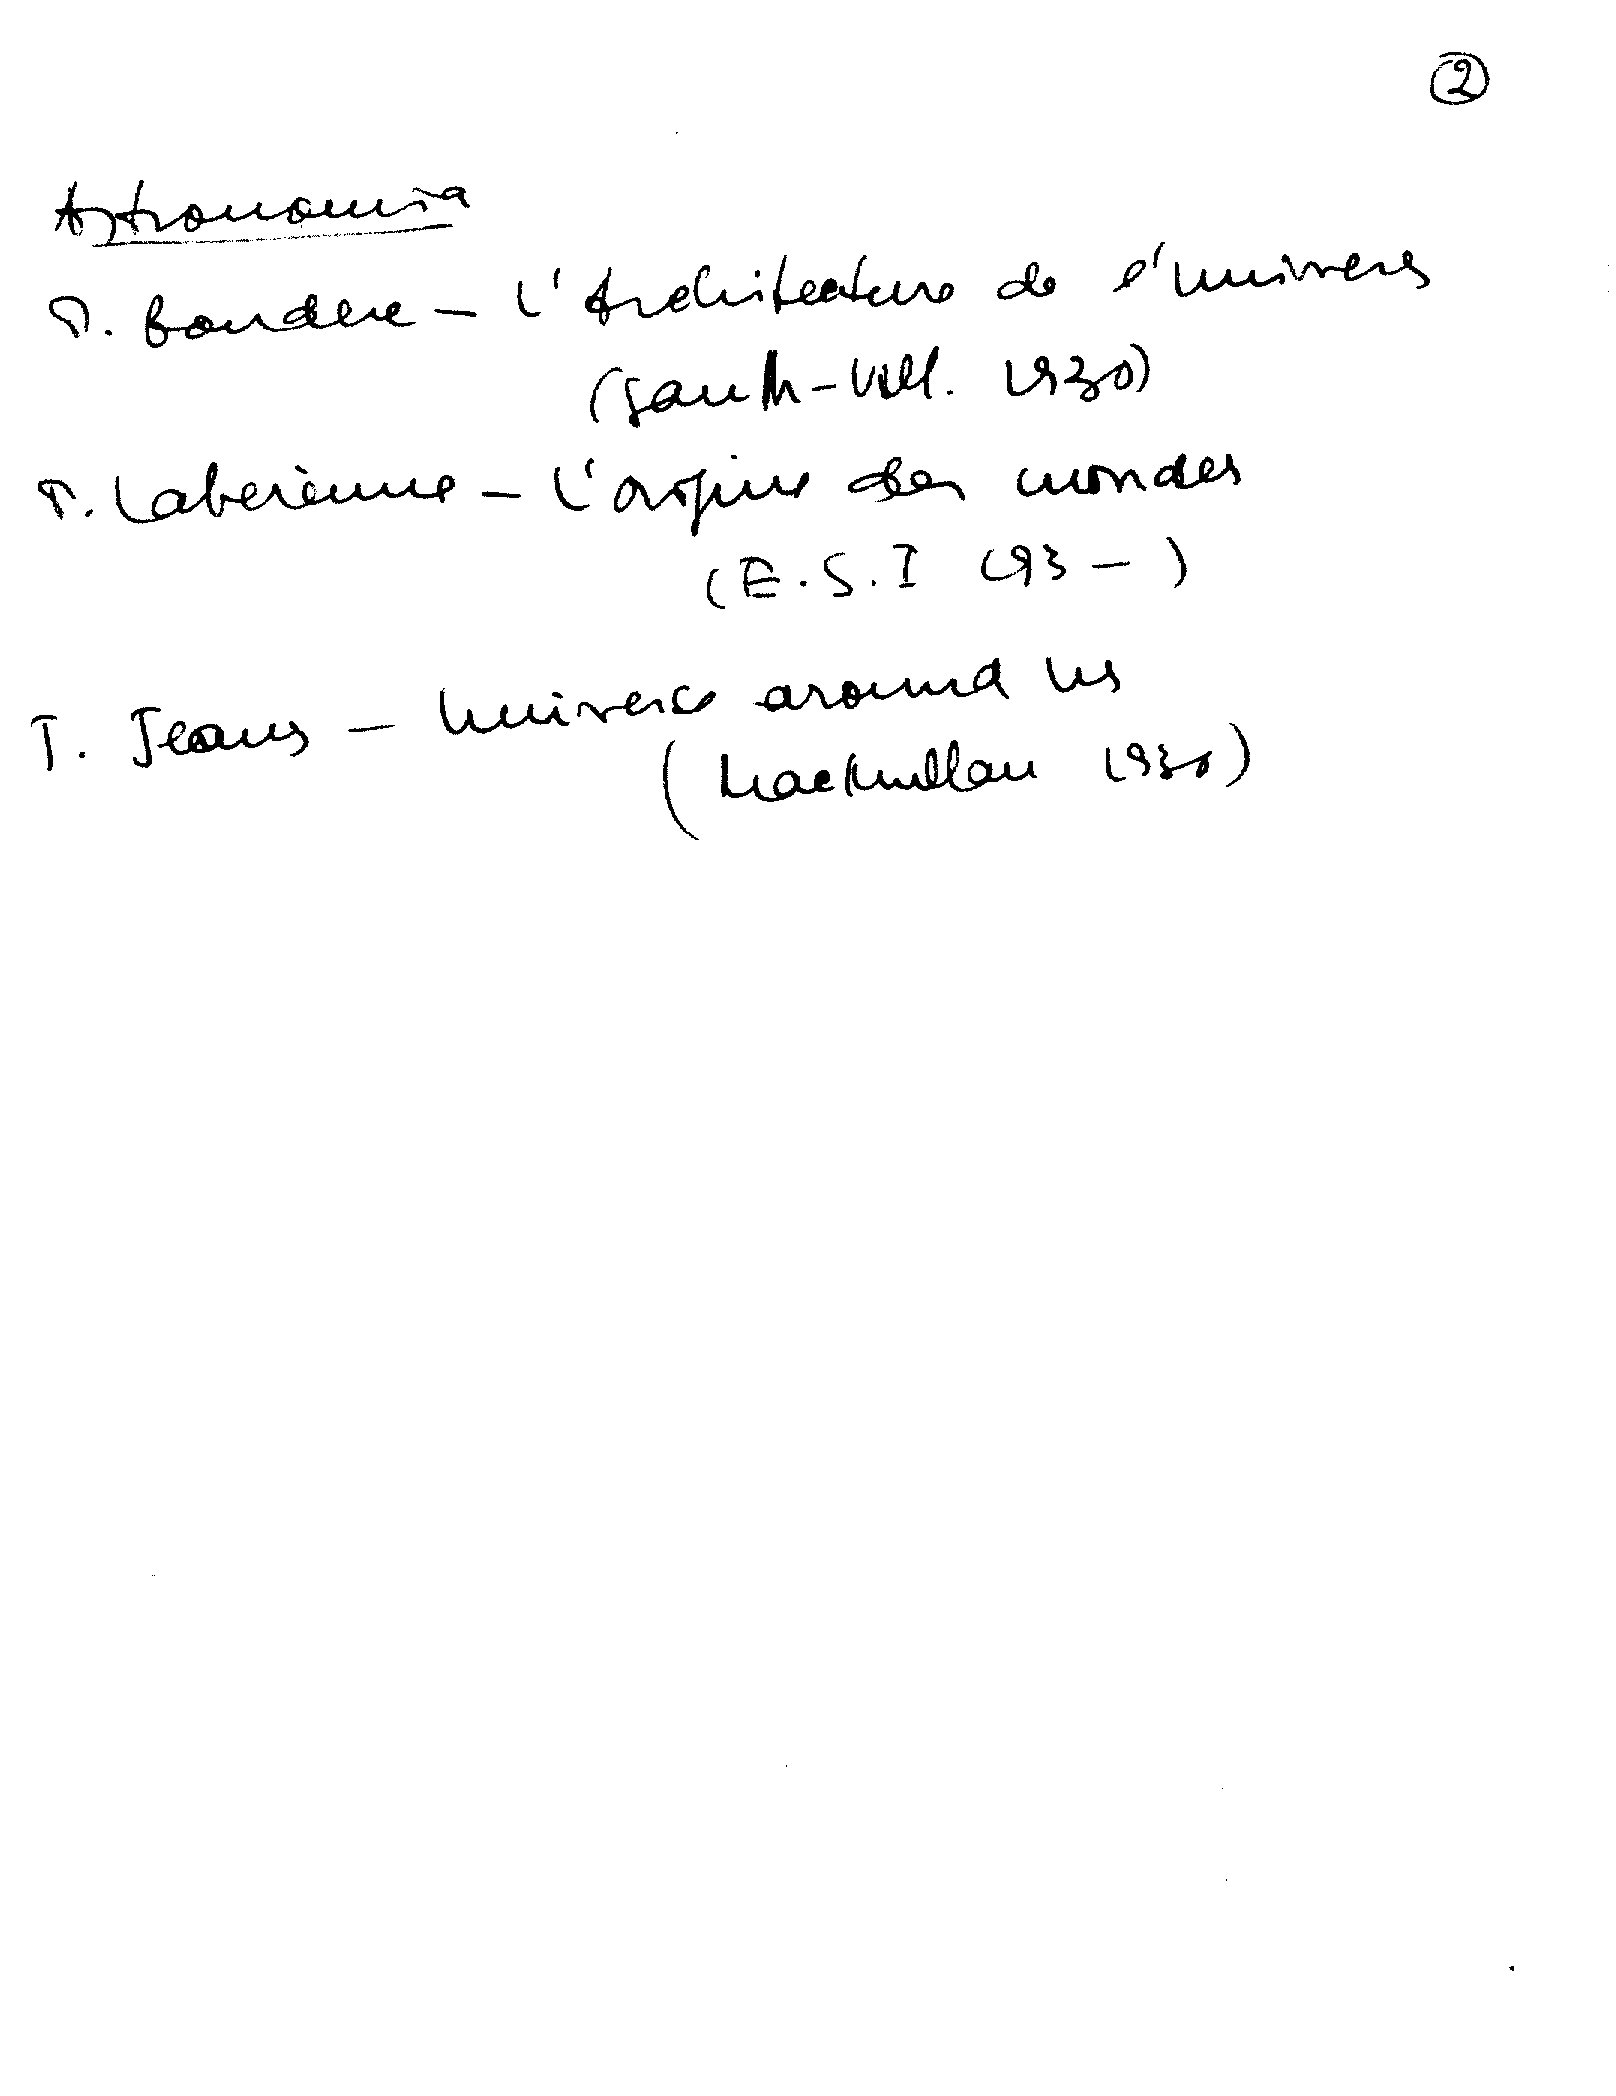 2
Astronomia
P. Couderc - L'Architecture de l'Univers
(Gauth-Vill. 1930)
P. Labérenne - L'origine des mondes
(E.S.I 193-)
J. Jeans - Universe around us
(MacMillan 1930)